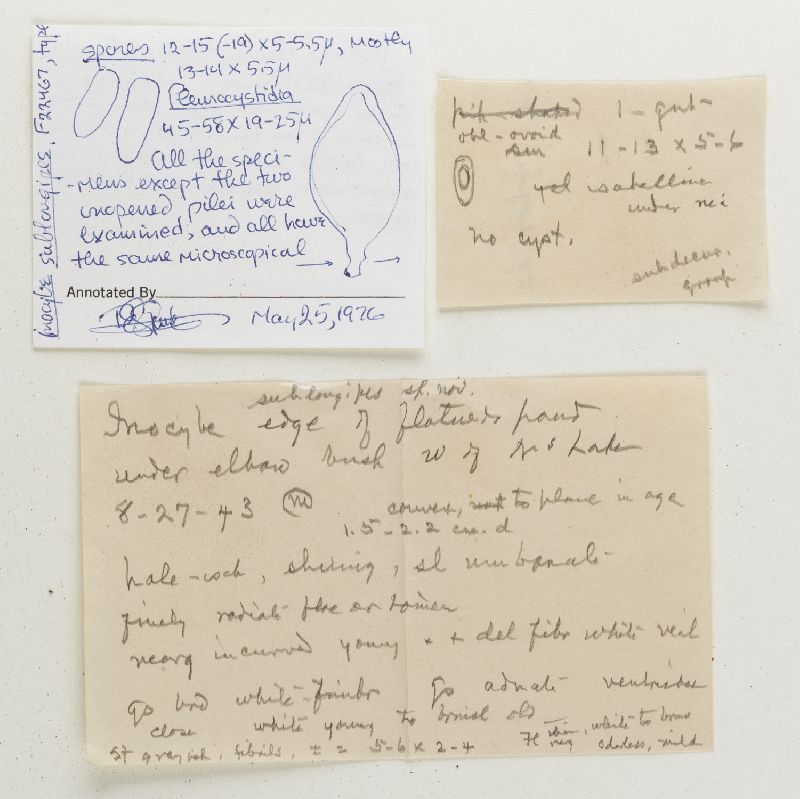 Inocybe sublongipes, F22467, type
spores 12-15(-19) x 5-5.5µ, Mostly
13-14 x 5.5µ
Pleurocystidia
45-58 x 19-25µ
All the speci-
-mens except the two
unopened pilei were
examined, and all have
the same microscopical →
Annotated By
May 25, 1976
1-gut
obl-ovoid
11-13 x 5-6
isabelline
under mi
no cyst.
subdecur.
group
sublongipes sp. nov.
Inocybe edge of flatwoods pond
under elbow bush w of Lake
8-27-43 convex, to plane in age
1.5-2.2 cm. d
pale-isab, shining, sl umbonate
finely radiate or tomen
marg incurved young + del fibr white veil
go brd white-fimbr go adnate ventricose
close white young to old
St grayish, fibrils, ± = 5-6 x 2-4 Fl thin, white to
odorless, mild